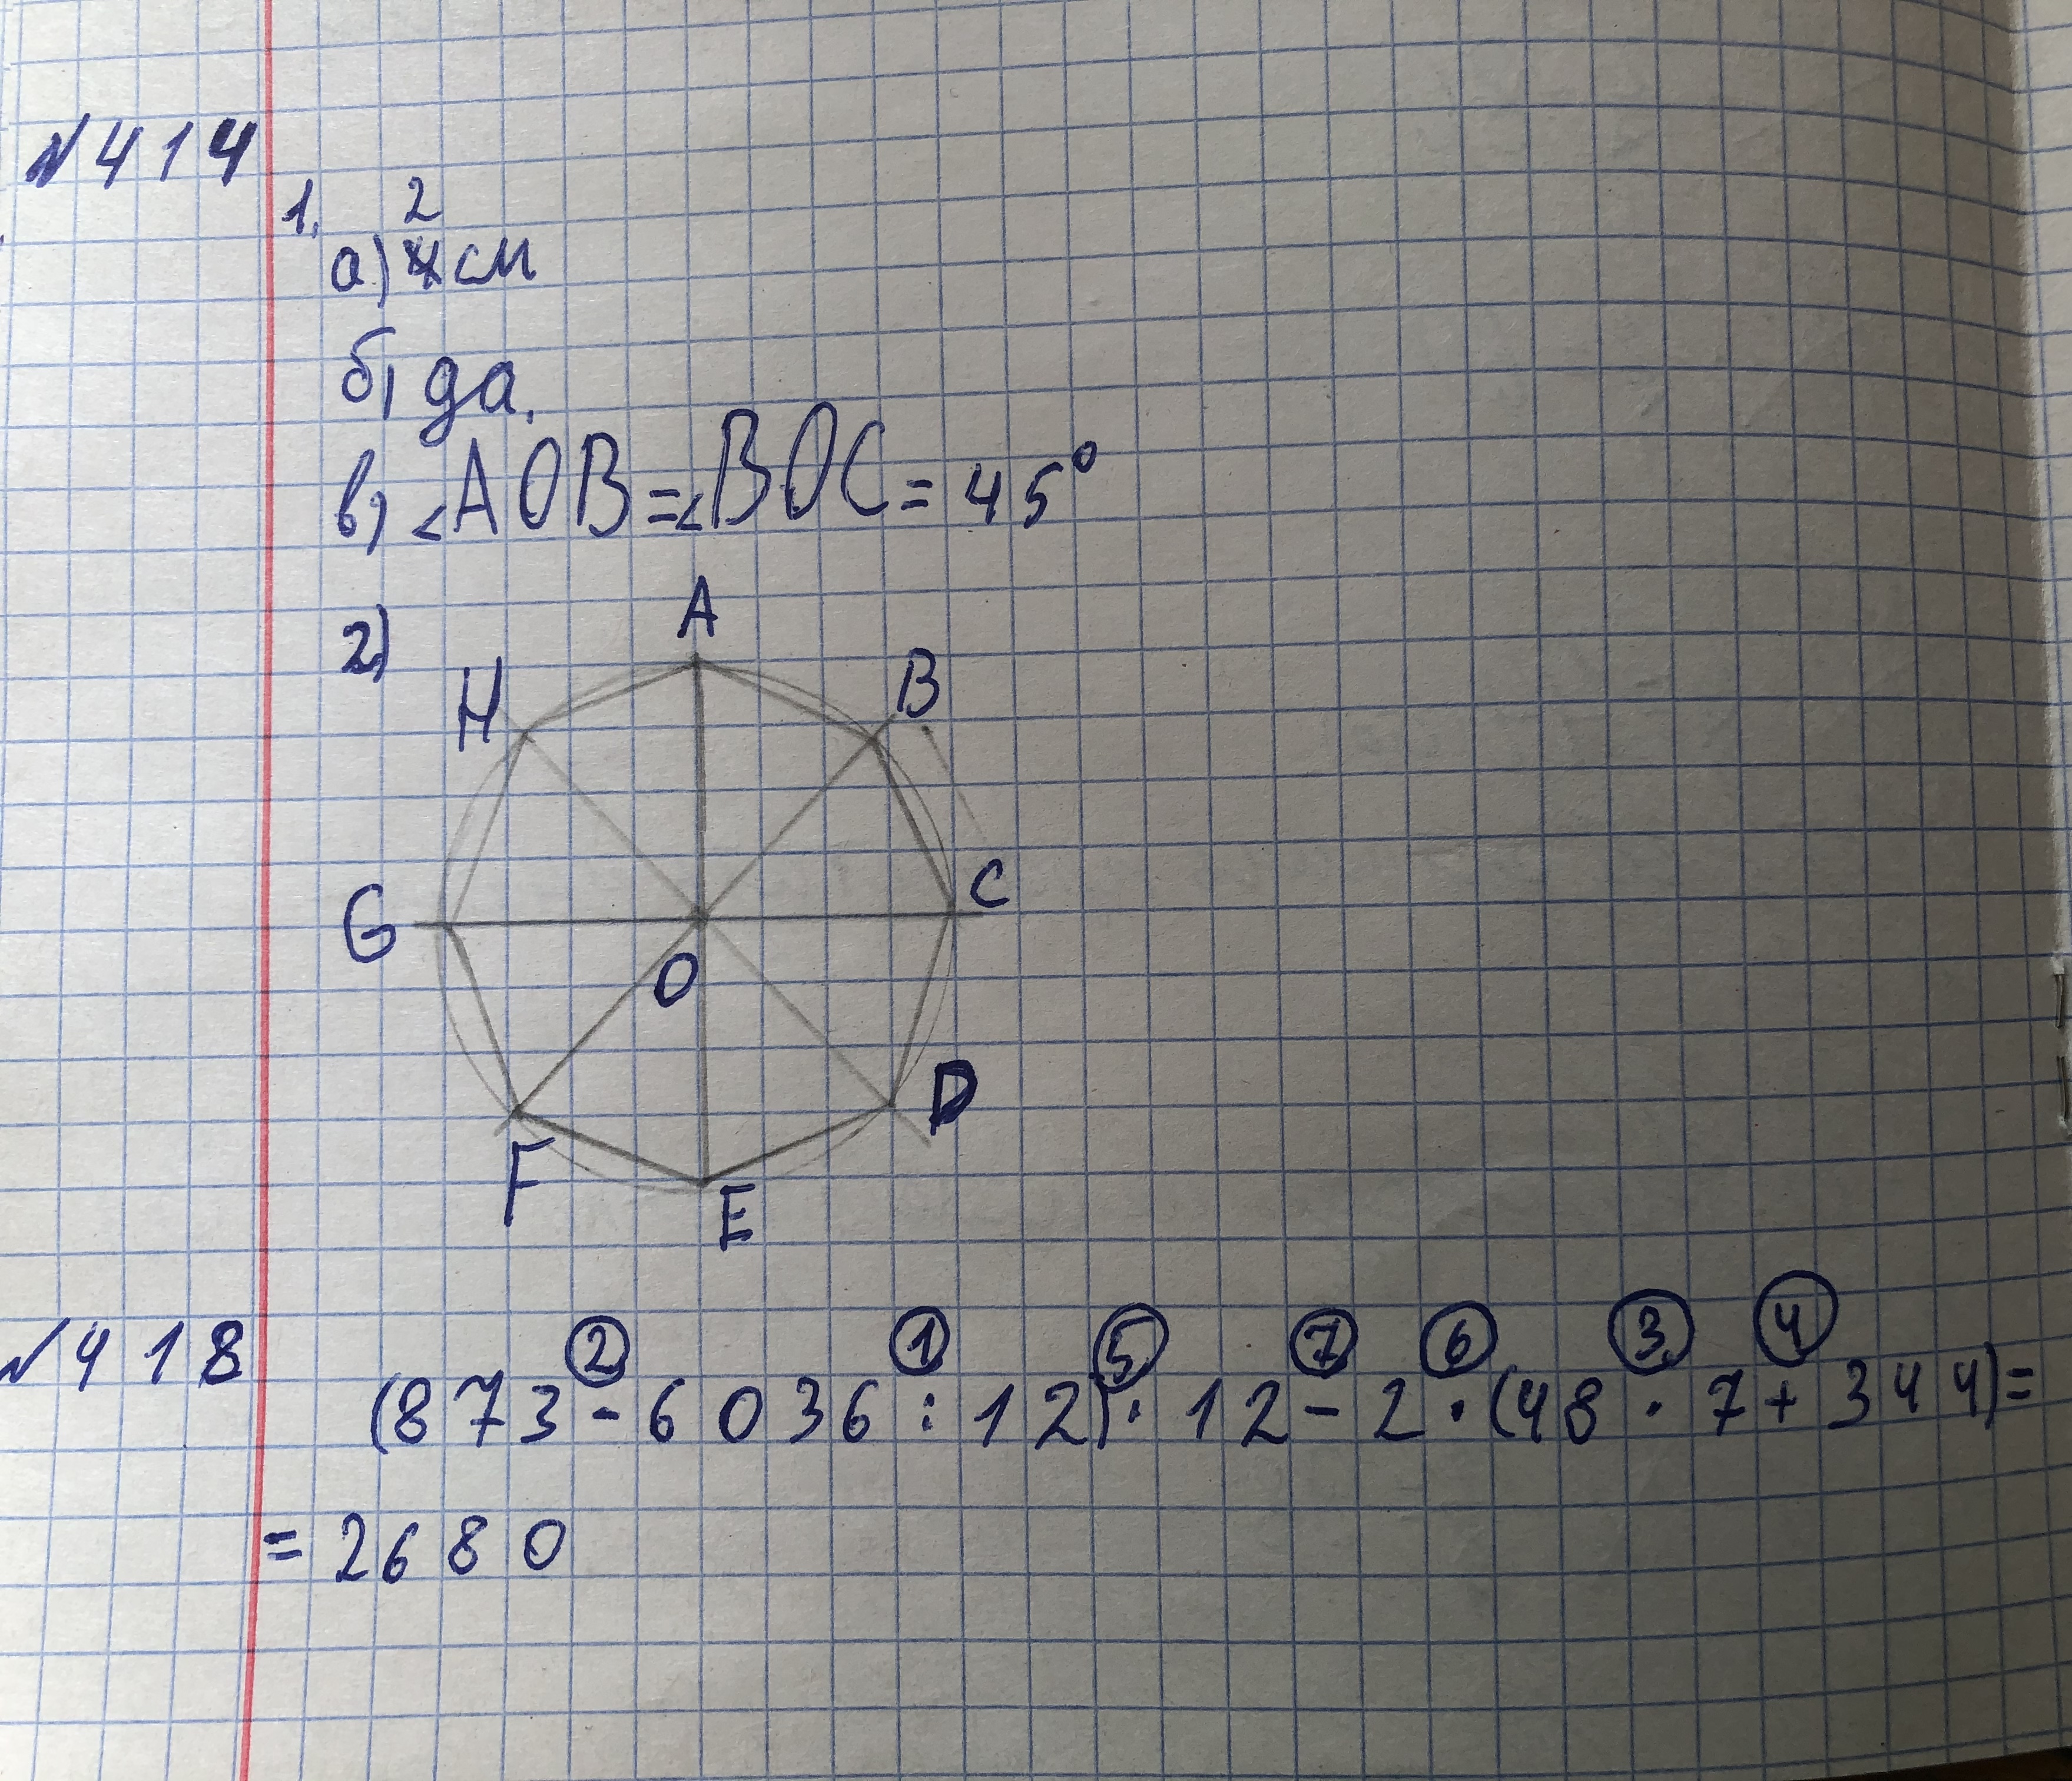 №414
1.
2
а) 4 см
б) да.
в) <AOB=<BOC=45°
2)
A
H
B
G
C
O
D
F
E
№418
2 1 5 7 6 3 4
(873-6036:12)·12-2·(48·7+344)=
=2680